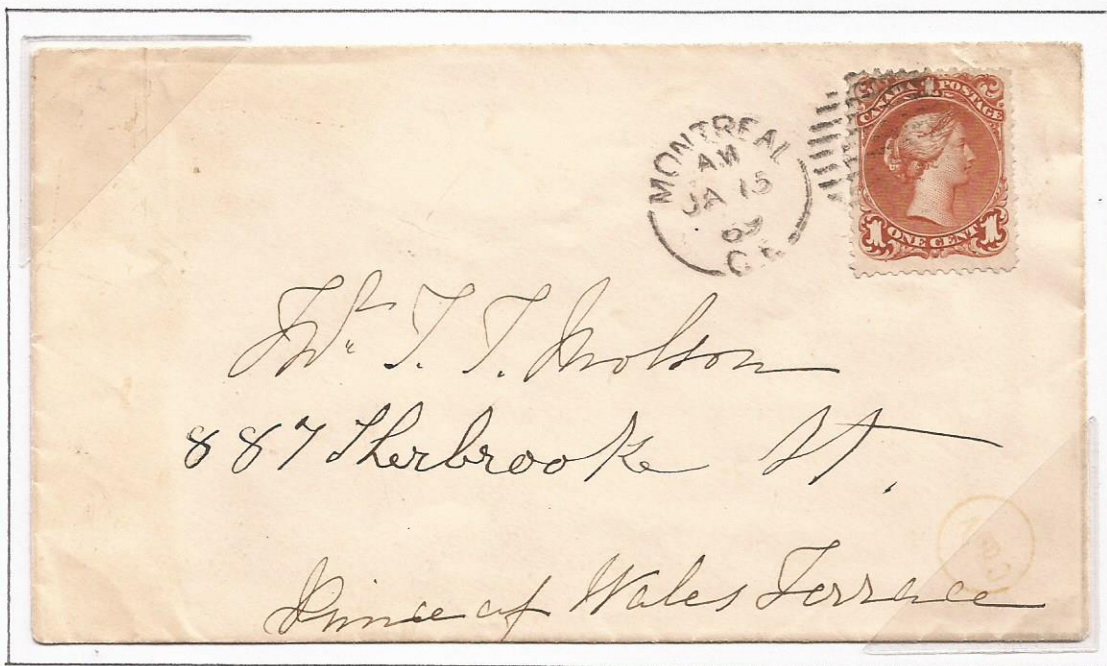 MONTREAL
AM
JA 15
69
C.E
1
CANADA POSTAGE
1 ONE CENT 1
887 Sherbrooke St.
Prince of Wales Terrace
Molson